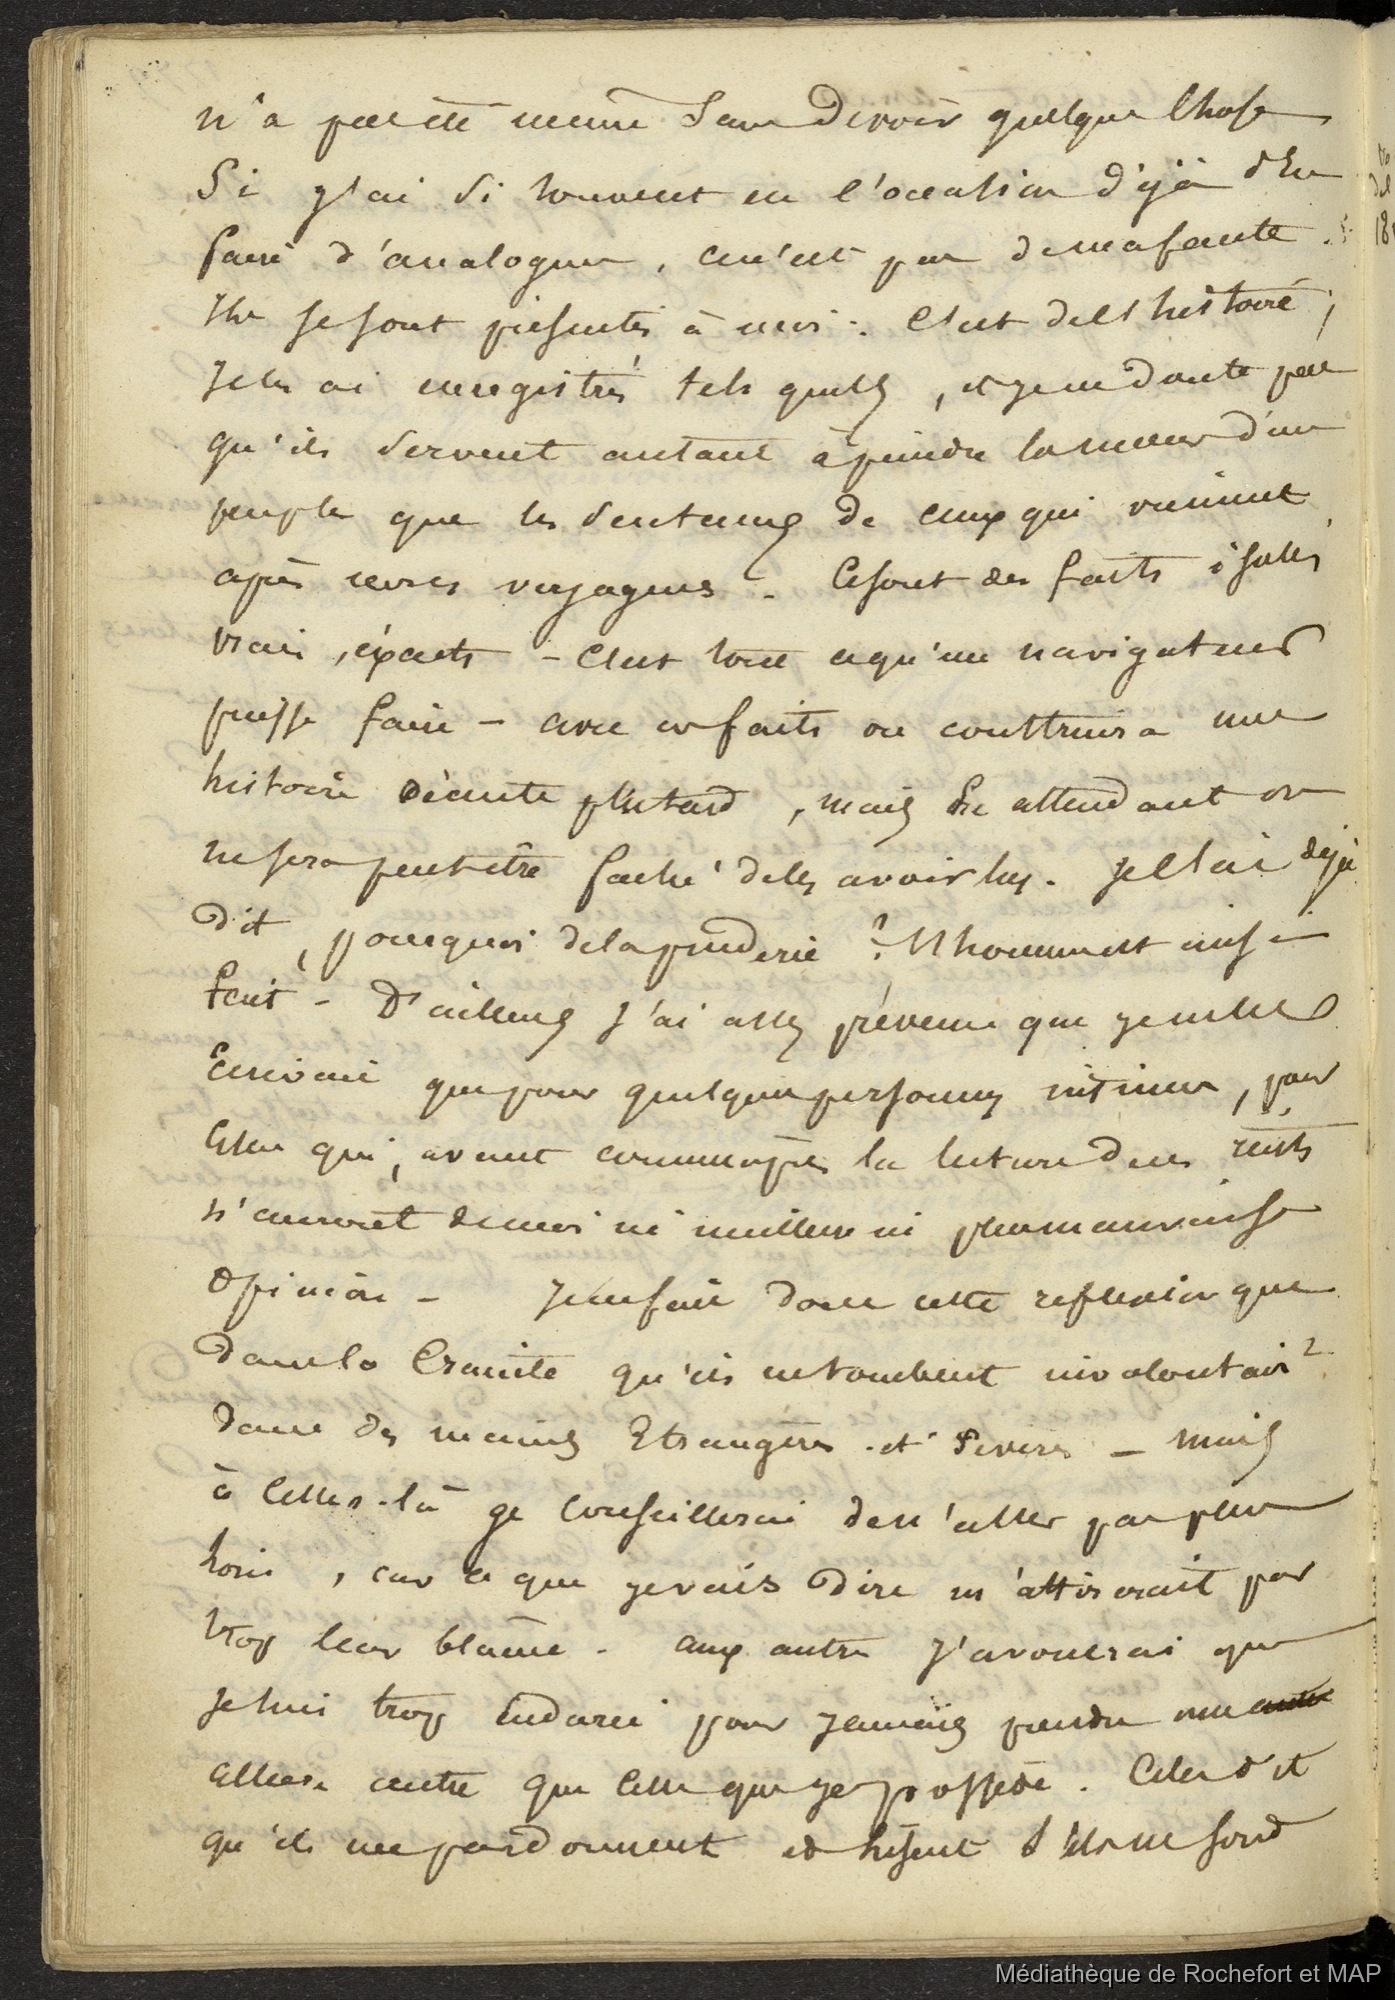 n'a pas été même sans devoir quelque chose
Si j'ai si souvent eu l'occasion déjà d'en
faire d'analogues, ce n'est pas de ma faute.
Ils se sont présentés à moi : C'est de l'histoire ;
Je les ai enregistrés tels quels, et je ne doute pas
qu'ils servent autant à peindre les mœurs d'un
peuple que les de ceux qui viennent
après nous voyageurs. Ce sont des faits isolés
vrais, exacts - C'est tout ce qu'un navigateur
puisse faire - avec ces faits on construira une
histoire décente plus tard, mais en attendant on
ne sera peut-être faché de les avoir lus. Je l'ai déjà
dit, pourquoi de la pruderie ? L'homme est ainsi
fait - D'ailleurs j'ai assez prévenu que je ne les
Écrivais que pour quelques personnes intimes, pour
celles qui, avant comme après la lecture de ces récits
n'auront de moi ni meilleure ni plus mauvaise
opinion - Je ne fais donc cette reflexion que
dans la Crainte qu'ils ne tombent involontair<sup>t</sup>
dans des mains Etrangères et Sévères - mais
à Celles-là je Conseillerai de n'aller pas plus
loin, car ce que je vais dire m'attirerait par
trop leur blâme. aux autres J'avouerai que
je suis trop Endurci pour jamais prendre une autre
allure autre que Celle que je possède. Cela dit
qu'ils me pardonnent et lisent s'ils me font
18
Médiathèque de Rochefort et MAP